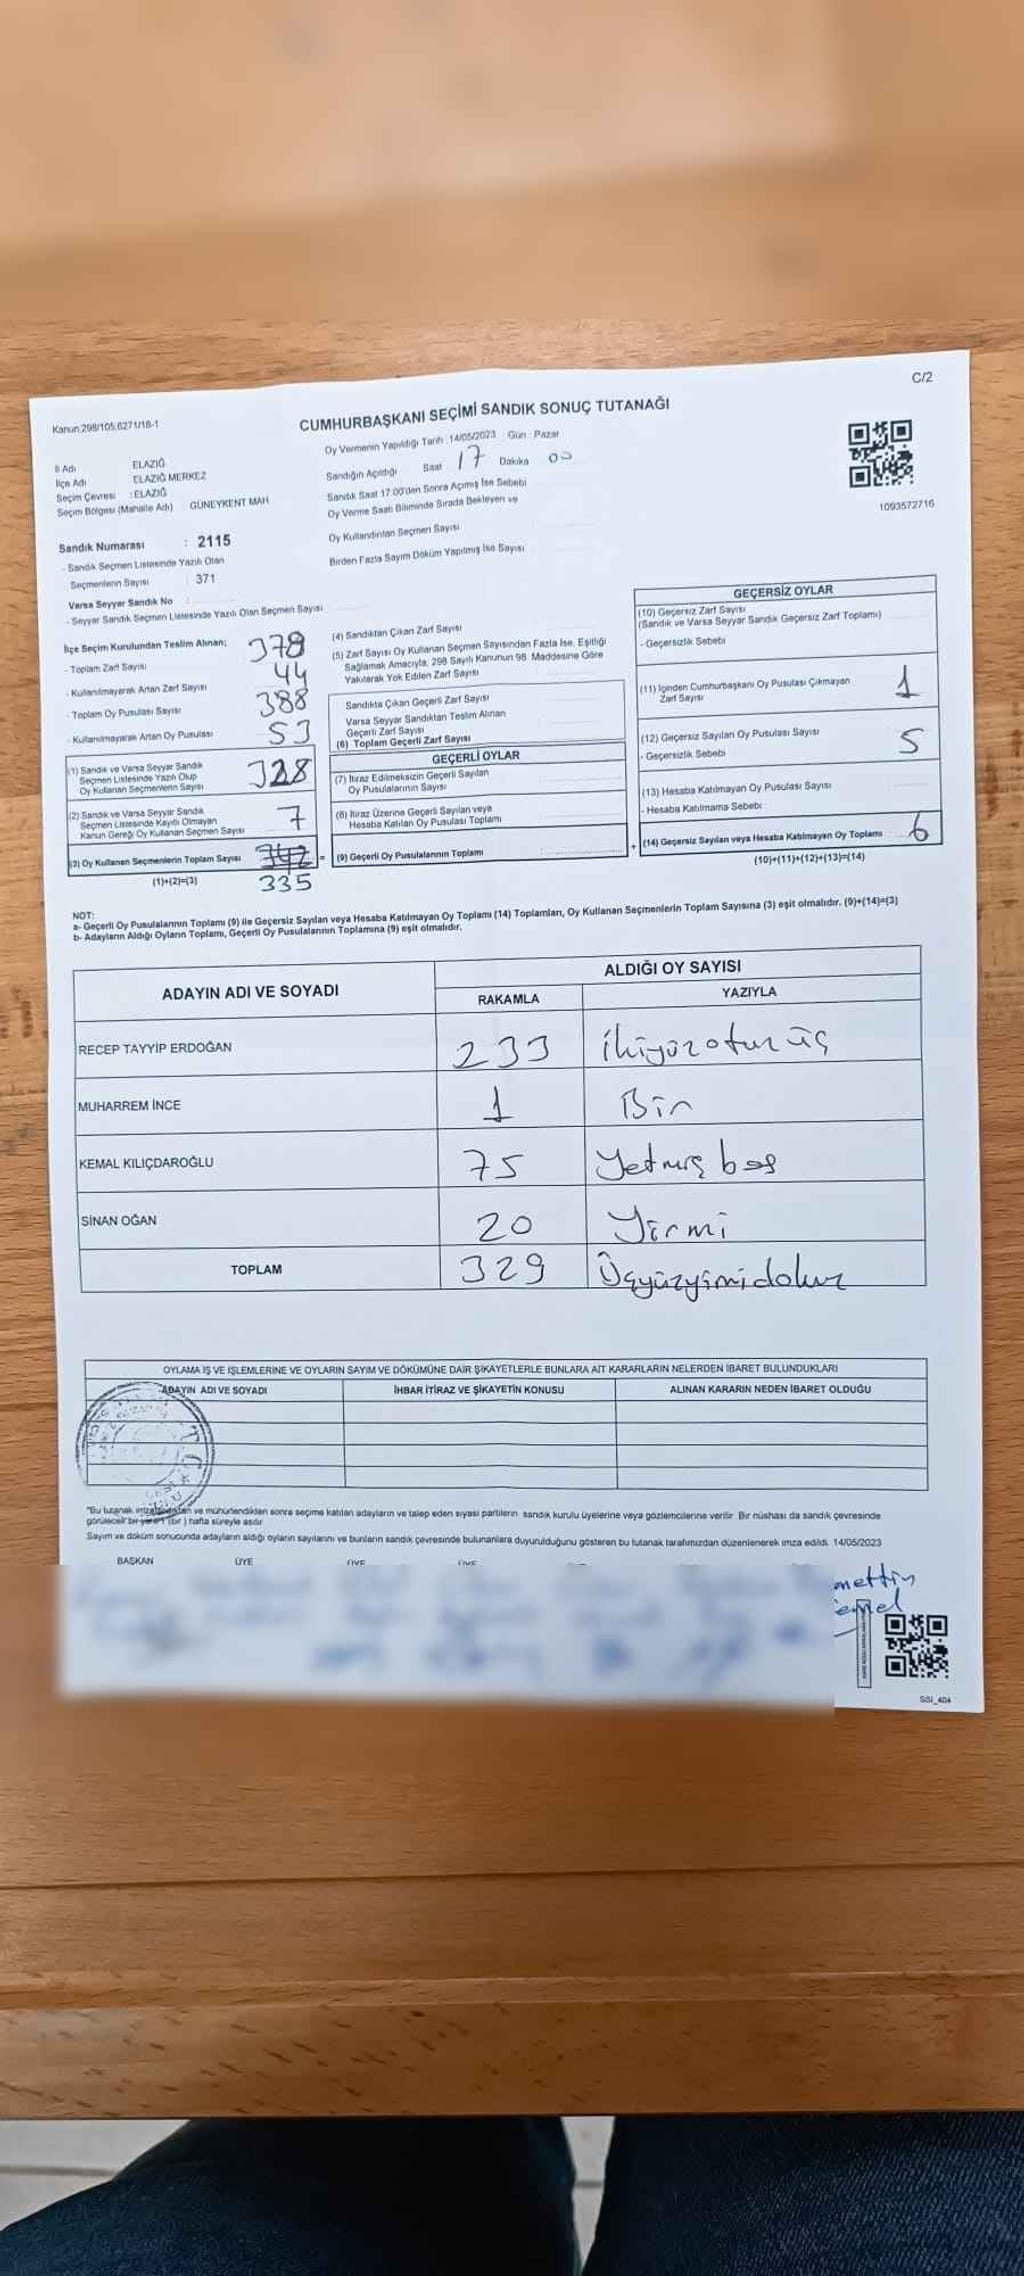 C/2
Kanun:298/105,6271/18-1
CUMHURBAŞKANI SEÇİMİ SANDIK SONUÇ TUTANAĞI
Oy Vermenin Yapıldığı Tarih :14/05/2023 Gün : Pazar
İl Adı ELAZIĞ
İlçe Adı ELAZIĞ MERKEZ
Seçim Çevresi : ELAZIĞ
Seçim Bölgesi (Mahalle Adı) GÜNEYKENT MAH
Sandığın Açıldığı Saat 17 Dakika 00
Sandık Saat 17.00'den Sonra Açımış İse Sebebi
Oy Verme Saati Bitiminde Sırada Bekleyen ve
Oy Kullandırılan Seçmen Sayısı
Birden Fazla Sayım Döküm Yapılmış İse Sayısı
1093572716
Sandık Numarası : 2115
- Sandık Seçmen Listesinde Yazılı Olan
Seçmenlerin Sayısı : 371
Varsa Seyyar Sandık No :
- Seyyar Sandık Seçmen Listesinde Yazılı Olan Seçmen Sayısı
İlçe Seçim Kurulundan Teslim Alınan;
- Toplam Zarf Sayısı 378
- Kullanılmayarak Artan Zarf Sayısı 44
- Toplam Oy Pusulası Sayısı 388
- Kullanılmayarak Artan Oy Pusulası 53
(1) Sandık ve Varsa Seyyar Sandık
Seçmen Listesinde Yazılı Olup
Oy Kullanan Seçmenlerin Sayısı 328
(2) Sandık ve Varsa Seyyar Sandık
Seçmen Listesinde Kayıtlı Olmayan
Kanun Gereği Oy Kullanan Seçmen Sayısı 7
(3) Oy Kullanan Seçmenlerin Toplam Sayısı 342 =
(1)+(2)=(3) 335
(4) Sandıktan Çıkan Zarf Sayısı
(5) Zarf Sayısı Oy Kullanan Seçmen Sayısından Fazla İse, Eşitliği
Sağlamak Amacıyla, 298 Sayılı Kanunun 98. Maddesine Göre
Yakılarak Yok Edilen Zarf Sayısı
Sandıkta Çıkan Geçerli Zarf Sayısı
Varsa Seyyar Sandıktan Teslim Alınan
Geçerli Zarf Sayısı
(6) Toplam Geçerli Zarf Sayısı
GEÇERLİ OYLAR
(7) İtiraz Edilmeksizin Geçerli Sayılan
Oy Pusulalarının Sayısı
(8) İtiraz Üzerine Geçerli Sayılan veya
Hesaba Katılan Oy Pusulası Toplamı
(9) Geçerli Oy Pusulalarının Toplamı +
GEÇERSİZ OYLAR
(10) Geçersiz Zarf Sayısı
(Sandık ve Varsa Seyyar Sandık Geçersiz Zarf Toplamı)
- Geçersizlik Sebebi
(11) İçinden Cumhurbaşkanı Oy Pusulası Çıkmayan
Zarf Sayısı 1
(12) Geçersiz Sayılan Oy Pusulası Sayısı 5
- Geçersizlik Sebebi
(13) Hesaba Katılmayan Oy Pusulası Sayısı
- Hesaba Katılmama Sebebi
(14) Geçersiz Sayılan veya Hesaba Katılmayan Oy Toplamı 6
(10)+(11)+(12)+(13)=(14)
NOT:
a- Geçerli Oy Pusulalarının Toplamı (9) ile Geçersiz Sayılan veya Hesaba Katılmayan Oy Toplamı (14) Toplamları, Oy Kullanan Seçmenlerin Toplam Sayısına (3) eşit olmalıdır. (9)+(14)=(3)
b- Adayların Aldığı Oyların Toplamı, Geçerli Oy Pusulalarının Toplamına (9) eşit olmalıdır.
ADAYIN ADI VE SOYADI ALDIĞI OY SAYISI
RAKAMLA YAZIYLA
RECEP TAYYİP ERDOĞAN 233 ikiyüzotuzüç
MUHARREM İNCE 1 Bir
KEMAL KILIÇDAROĞLU 75 Yetmiş beş
SİNAN OĞAN 20 Yirmi
TOPLAM 329 Üçyüzyirmidokuz
OYLAMA İŞ VE İŞLEMLERİNE VE OYLARIN SAYIM VE DÖKÜMÜNE DAİR ŞİKAYETLERLE BUNLARA AİT KARARLARIN NELERDEN İBARET BULUNDUKLARI
ADAYIN ADI VE SOYADI İHBAR İTİRAZ VE ŞİKAYETİN KONUSU ALINAN KARARIN NEDEN İBARET OLDUĞU
"Bu tutanak imzalandıktan ve mühürlendikten sonra seçime katılan adayların ve talep eden siyasi partilerin sandık kurulu üyelerine veya gözlemcilerine verilir. Bir nüshası da sandık çevresinde
görülecek bir yere 1 (bir) hafta süreyle asılır.
Sayım ve döküm sonucunda adayların aldığı oyların sayılarını ve bunların sandık çevresinde bulunanlara duyurulduğunu gösteren bu tutanak tarafımızdan düzenlenerek imza edildi. 14/05/2023
BAŞKAN ÜYE ÜYE ÜYE
mettin
SSI_404